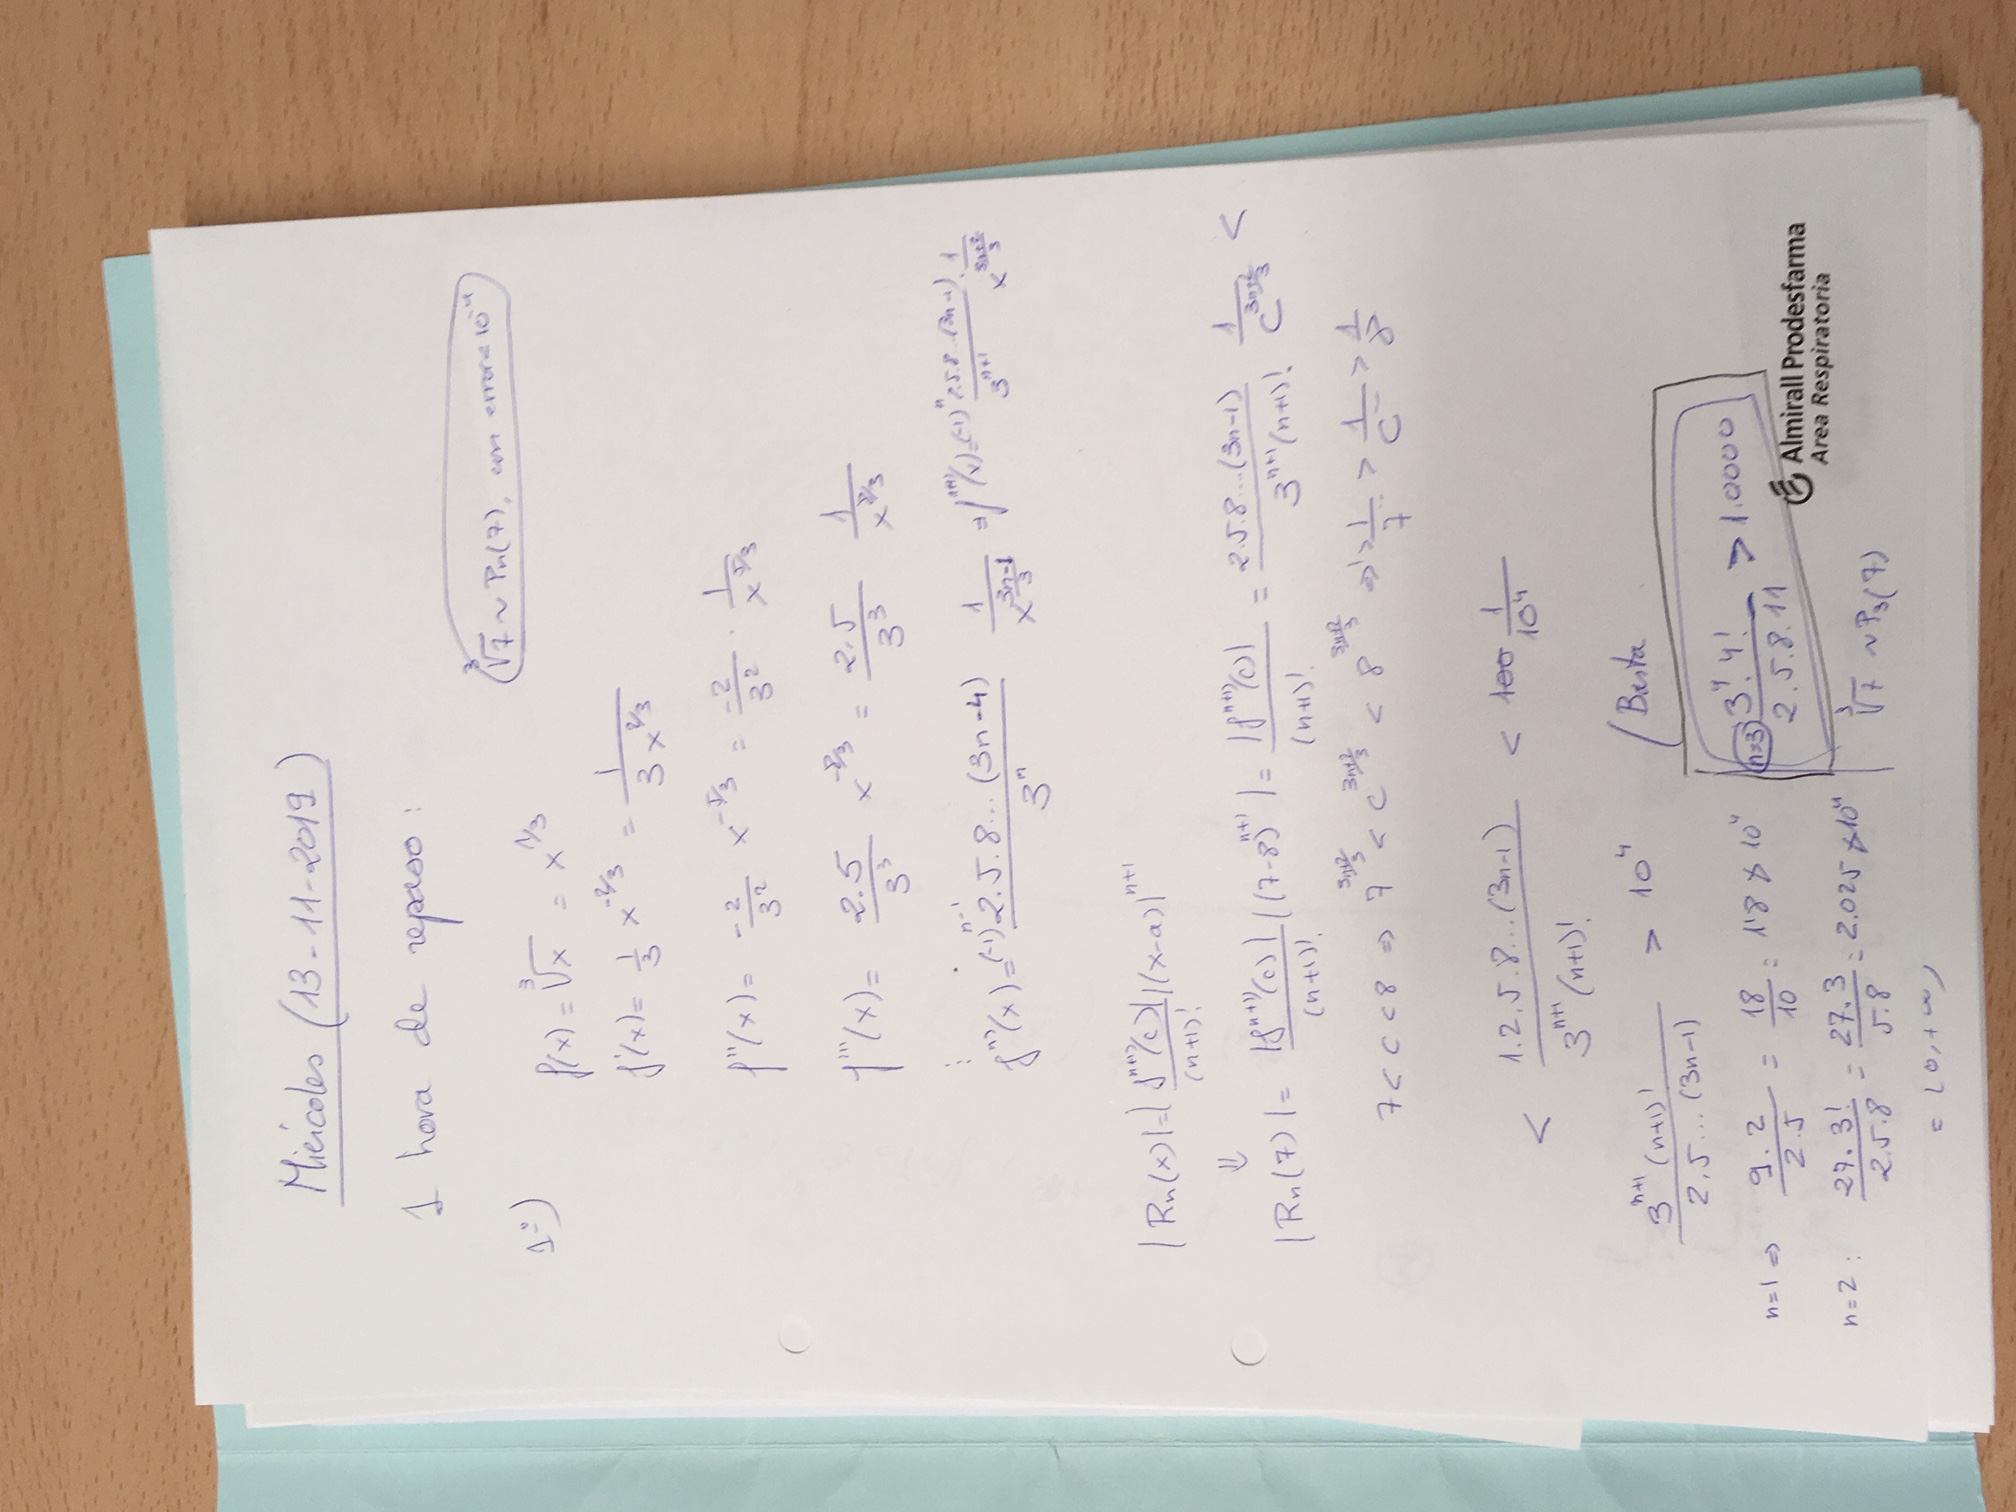 Miércoles (13-11-2019)
1 hora de repaso:
∛7 ~ Pn(7), con error = 10⁻⁴
1º) f(x) = ∛x = x^(1/3)
f'(x) = 1/3 x^(-2/3) = 1/(3x^(2/3))
f''(x) = -2/3² x^(-5/3) = -2/3² · 1/x^(5/3)
f'''(x) = 2·5/3³ x^(-8/3) = 2·5/3³ 1/x^(8/3)
⋮
f^(n)(x) = (-1)^(n-1) 2.5.8...(3n-4)/3^n 1/x^((3n-1)/3) ⇒ f^(n+1)(x) = (-1)^n 2.5.8...(3n-1)/3^(n+1) · 1/x^((3n+2)/3)
|Rn(x)| = |f^(n+1)(c)|/(n+1)! |(x-a)|^(n+1)
⇓
|Rn(7)| = |f^(n+1)(c)|/(n+1)! |(7-8)^(n+1)| = |f^(n+1)(c)|/(n+1)! = 2.5.8...(3n-1)/(3^(n+1)(n+1)!) 1/c^((3n+2)/3) <
7 < c < 8 ⇒ 7^((3n+2)/3) < c^((3n+2)/3) < 8^((3n+2)/3) ⇒ 1 > 1/7 > 1/c > 1/8
< 1.2.5.8...(3n-1)/(3^(n+1)(n+1)!) < 100 1/10⁴
3^(n+1)(n+1)!/(2.5...(3n-1)) > 10⁴
Basta
n=1 ⇒ 9.2/2.5 = 18/10 = 1'8 ≯ 10⁴
n=3 3⁴.4!/2.5.8.11 > 1.0000
n=2: 27.3!/2.5.8 = 27.3/5.8 = 2.025 ≯ 10⁴
∛7 ~ P₃(7)
= (0,+∞)
Almirall Prodesfarma
Area Respiratoria